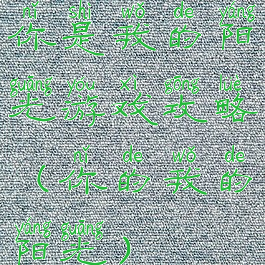 nǐ shì wǒ de yáng
你是我的阳
guāng yóu xì gōng lüè
光游戏攻略
nǐ de wǒ de
（你的我的
yáng guāng
阳光）